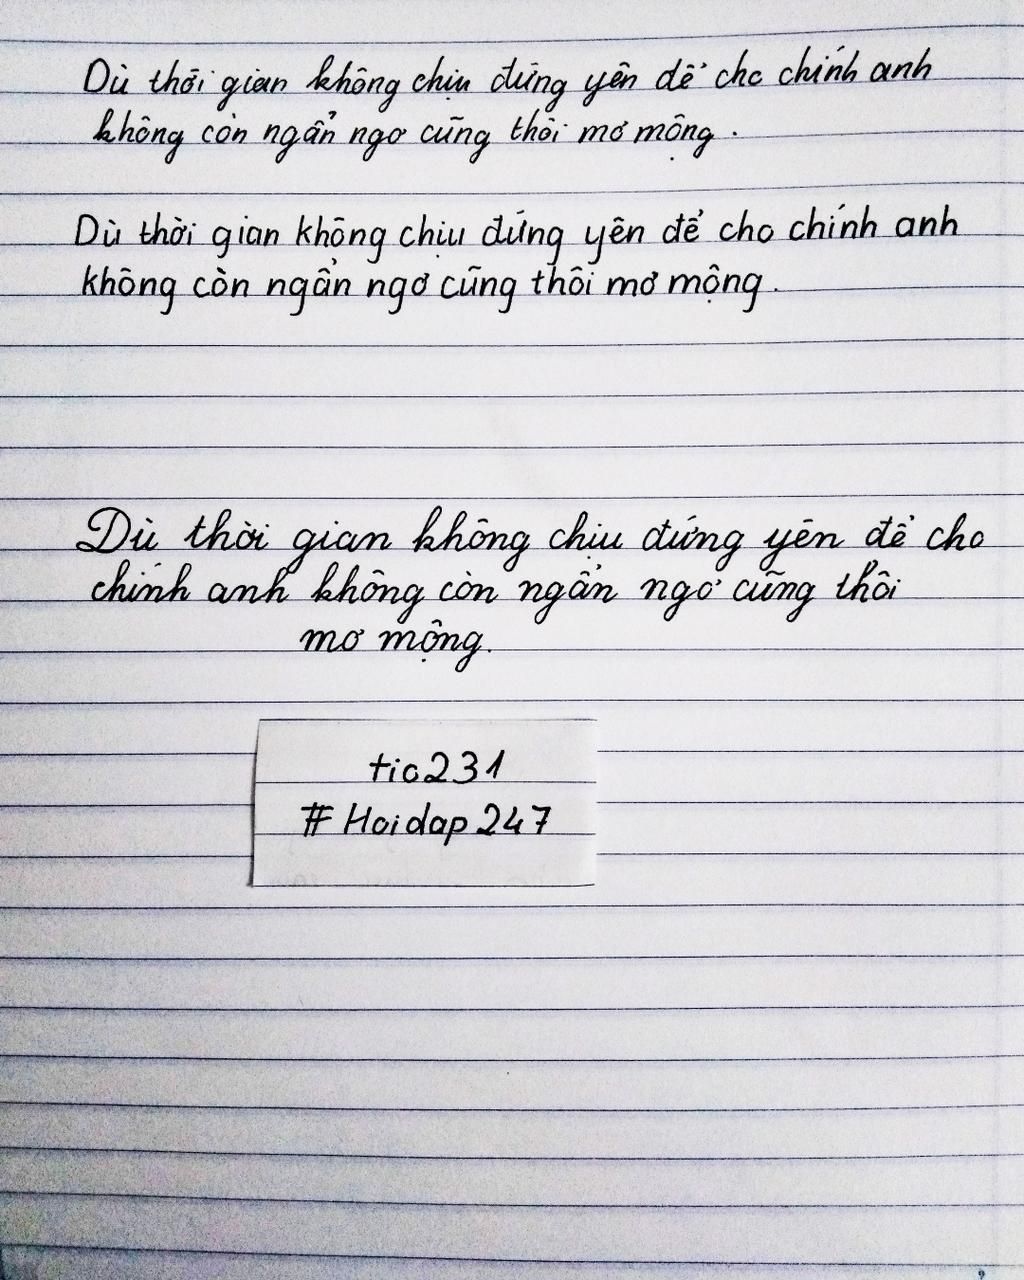 Dù thời gian không chịu đứng yên để cho chính anh
không còn ngẩn ngơ cũng thôi mơ mộng.
Dù thời gian không chịu đứng yên để cho chính anh
không còn ngẩn ngơ cũng thôi mơ mộng.
Dù thời gian không chịu đứng yên để cho
chính anh không còn ngẩn ngơ cũng thôi
mơ mộng.
tic231
#Hoidap247